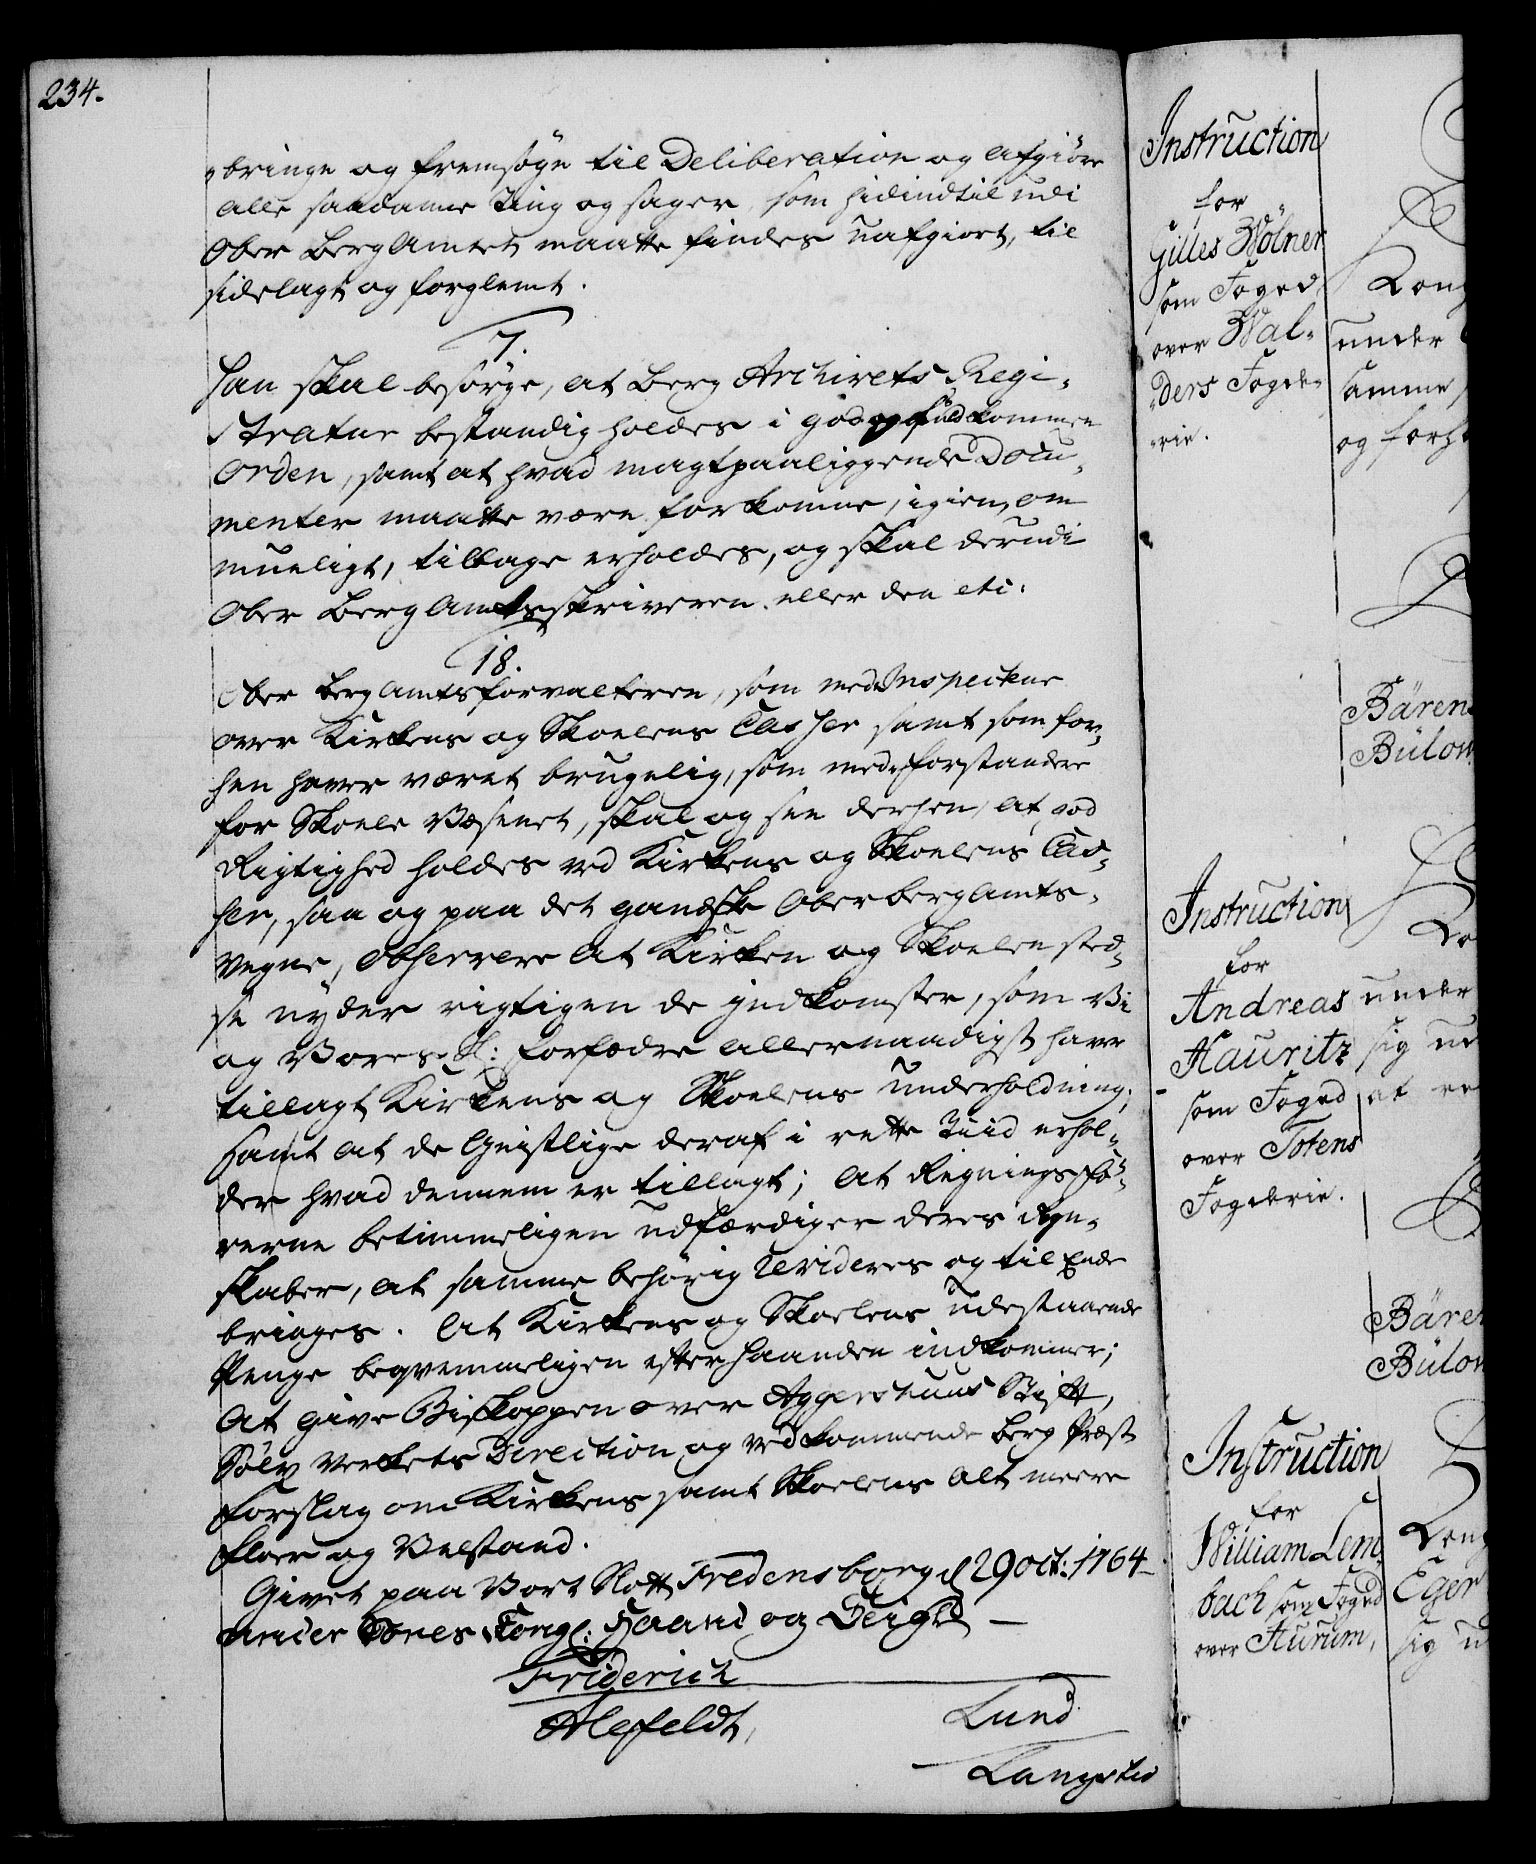 234.
bringe og fremsøge til Deliberation og Afgiøre
alle saadanne Ting og sager, som hidindtil udi
Ober Berg Amtet maatte findes uafgiort, til
sidelagt og forglemt.
7.
Han skal besørge, at Berg Archivets Regi-
stratur bestandig holdes i god og fuldkommen
Orden, samt at hvad magtpaaliggende Docu-
menter maatte være forkomne, igien, om
mueligt, tilbage erholdes, og skal derudi
Ober Berg Amtsskriveren eller den
18.
Ober Berg Amtsforvalteren, som med Inspecteur
over Kirkens og Skoelens Casser samt som for-
hen haver været brugelig, som med forstandere
for Skoele Væsenet, skal og see derhen, at god
Rigtighed holdes ved Kirkens og Skoelens Cas-
ser, saa og paa det gandske Oberbergamts-
Vegne, observere at Kirken og Skoelen sted-
se nyder rigtigen de indkomster, som Vi
og Vores Sl: Forfædre allernaadigst have
tillagt Kirkens og Skoelens Underholdning;
samt at de Geistlige deraf i rette Tiid erhol-
der hvad dennem er tillagt; At Regningsfø-
rerne betimmeligen udfærdiger deres Regn-
skaber, at samme behørig Revideres og til Ende
bringes. At Kirkens og Skoelens udestaaende
Penge beqvemmeligen efterhaanden indkommer;
At give Biskoppen over Aggershuus Stift,
Sølv Verkets Direction og vedkommende Berg Præst
Forslag om Kirkens samt Skoelens alt meere
Floer og Velstand.
Givet paa Vort Slott Fredensborg d 29 oct: 1764
under Vores Kongl: Haand og Seigl
Friderich
Alefeldt,
Lund
Langsted
Instruction
for
Gilles Wölner
som Foged
over Wal-
ders Fogde-
rie.
Kong
under
samme
og forh
Bären
Bülow
Instruction
for
Andreas
Hauritz
som Foged
over Totens
Fogderie.
under
sig
at
Bären
Bülow
Instruction
for
William Lem-
bach som Foged
over Aurum,
Kong
Eger
sig u